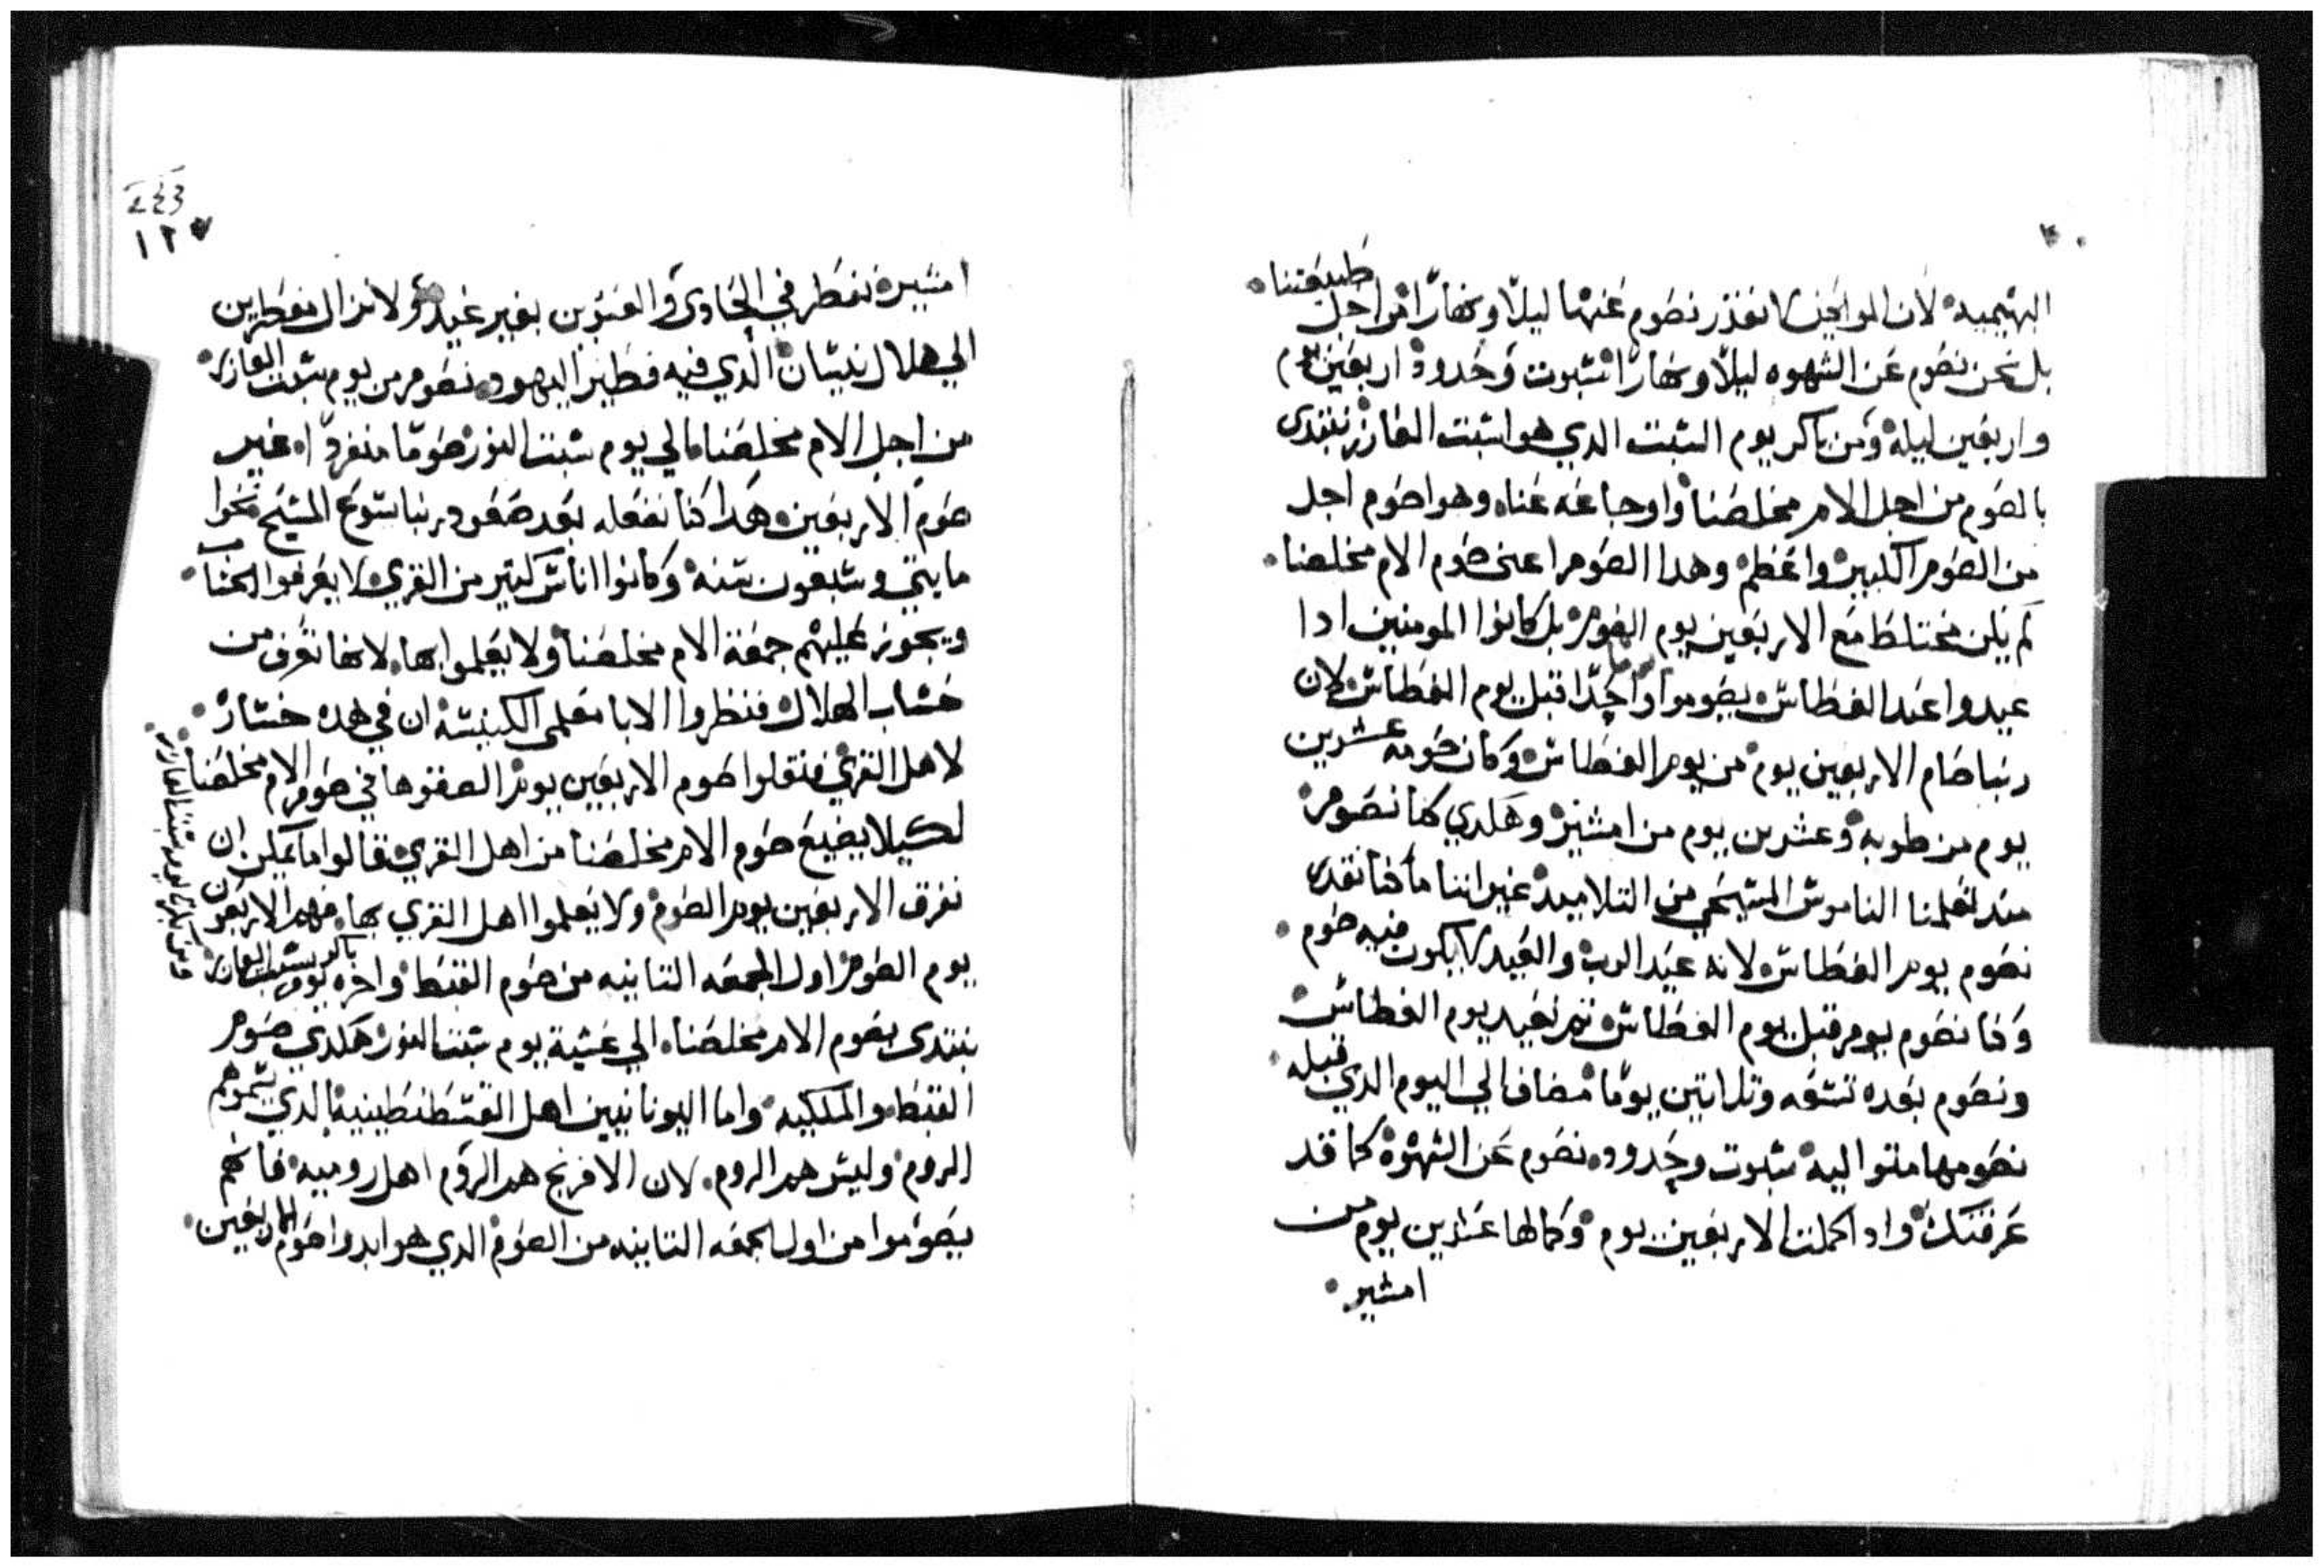 البهيميه لان الواجب لا نقدر نصوم عنها ليلاً ونهاراً من اجل طبيعتنا
بل نحن نصوم عن الشهوه ليلاً ونهاراً سبوت وحدود اربعين يوم
واربعين ليله ومن باكر يوم السبت الدي هوا سبت العازر نبتدي
بالصوم من اجل الام مخلصنا واوجاعه عنا وهوا صوم اجل
من الصوم الكبير واعظم وهدا الصوم اعني صوم الام مخلصنا
لم يكن مختلط مع الاربعين يوم الصوم بل كانوا المومنين ادا
عيدوا عيد الغطاس يصوموا يوماً واحداً قبل يوم الغطاس لان
ربنا صام الاربعين يوم من يوم الغطاس وكان صومه عشرين
يوم من طوبه وعشرين يوم من امشير وهكدي كنا نصوم
مند تعلمنا الناموس المسيحي من التلاميد غير اننا ما كنا نقدر
نصوم يوم الغطاس لانه عيد الرب والعيد لا يكون فيه صوم
وكنا نصوم يوم قبل يوم الغطاس ثم نعيد يوم الغطاس
ونصوم بعده تسعه وتلاتين يوماً مضاف الي اليوم الدي قبله
نصومها متواليه سبوت وحدود نصوم عن الشهوة كما قد
عرفتك وادا كملت الاربعين يوم وكمالها عشرين يوم من
امشير
243
١٢٧
امشير نفطر في الحادي والعشرين بغير عيد ولا نزال نفطرين
الي هلال نيسان الدي فيه فطير اليهود نصوم من يوم سبت العازر
من اجل الام مخلصنا الي يوم سبت النور صوماً منفرداً غير
صوم الاربعين هكدا كنا نفعله بعد صعود ربنا يسوع المسيح نحوا
مايتي وسبعون سنه وكانوا اناس كتير من القري لا يعرفوا الحساب
ويجوز عليهم جمعة الام مخلصنا ولا يعلموا بها لانها تعرف من
حساب الهلال فنظروا الابا معلمي الكنيسة ان في هده خساره
لاهل القري فنقلوا صوم الاربعين يوم الصقوها في صوم الام مخلصنا
لكيلا يضيع صوم الام مخلصنا من اهل القري قالوا ما يمكن ان
نفرق الاربعين يوم الصوم ولا يعلموا اهل القري بها فهدا الاربعون
يوم الصوم اول الجمعه التانيه من صوم القبط واخره يوم سبت العازر
ومن باكر يوم سبت العازر
نبتدي بصوم الام مخلصنا الي عشية يوم سبت النور هكدي صوم
القبط والملكيه واما اليونانيين اهل القسطنطينية الدي يسموهم
الروم وليس هم الروم لان الافرنج هم الروم اهل روميه فانهم
يصوموا من اول الجمعه التانيه من الصوم الدي هو ابدوا صوم الاربعين